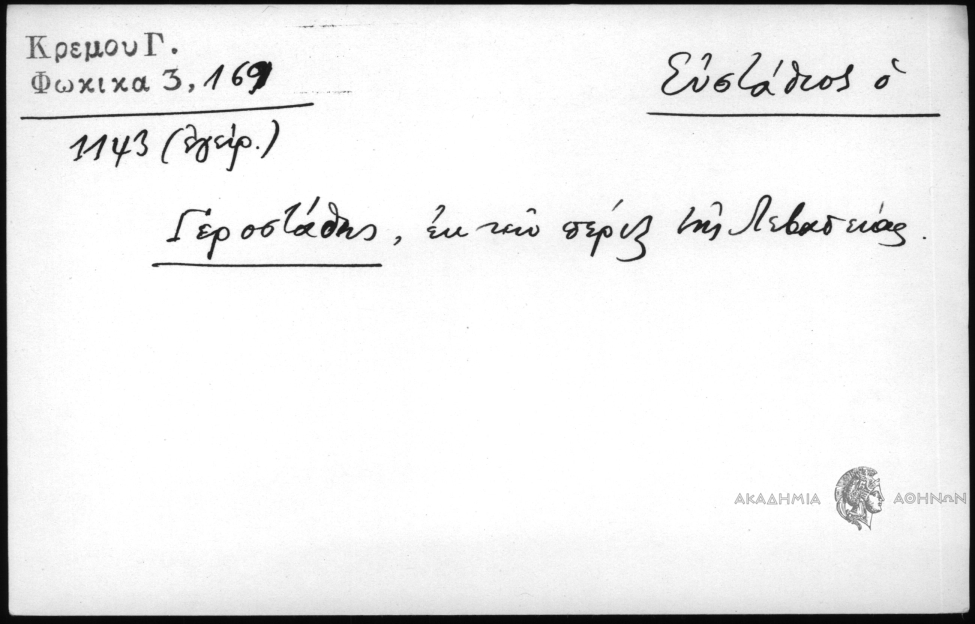 Κρεμου Γ.
Φωκικα 3, 169
Εὐστάθιος ὁ
1143 (ἐγειρ.)
Γεροστάθης, ἐκ τῶν πέριξ τῆς Λεβαδείας.
ΑΚΑΔΗΜΙΑ ΑΘΗΝΩΝ